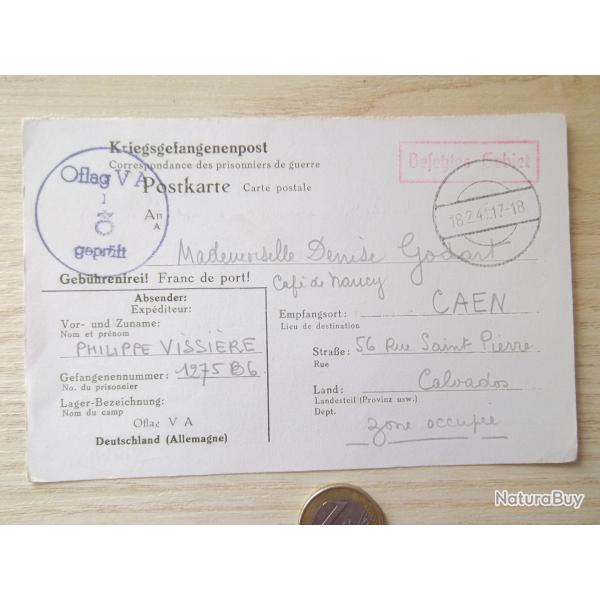 Kriegsgefangenenpost
Correspondance des prisonniers de guerre
Postkarte Carte postale
Oflag V A
1
geprüft
Besetztes Gebiet
18.2.41.17-18
An
A
Mademoiselle Denise Godart
Café de Nancy
Gebührenfrei! Franc de port!
Absender:
Expéditeur:
Vor- und Zuname:
Nom et prénom
PHILIPPE VISSIÈRE
Gefangenennummer: 1275 B6
No. du prisonnier
Lager-Bezeichnung:
Nom du camp
Oflag V A
Deutschland (Allemagne)
Empfangsort: CAEN
Lieu de destination
Straße: 56 Rue Saint Pierre
Rue
Land: Calvados
Landesteil (Provinz usw.)
Dépt.
zone occupée
NaturaBuy